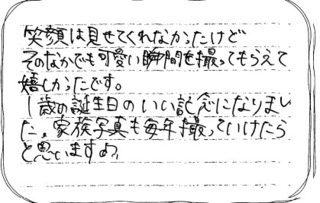 笑顔は見せてくれなかったけど
そのなかでも可愛い瞬間を撮ってもらえて
嬉しかったです。
1歳の誕生日のいい記念になりまし
た。家族写真も毎年撮っていけたら
と思います♪